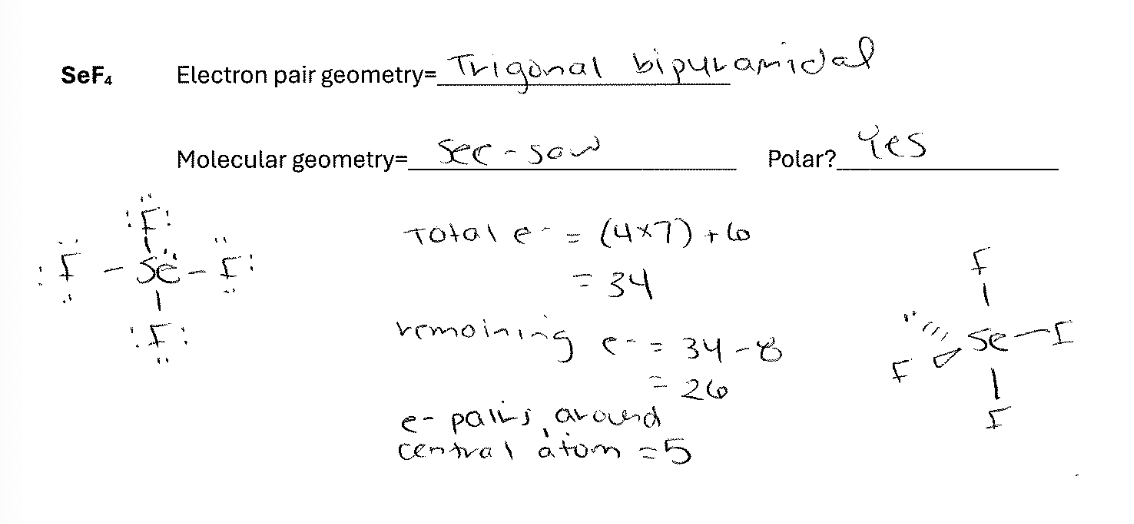 SeF₄ Electron pair geometry= Trigonal bipyramidal
Molecular geometry= See-saw Polar? Yes
:F:
:F - Se - F:
:F:
Total e- = (4x7) + 6
= 34
remaining e- = 34-8
= 26
e- pairs around
central atom = 5
F
Se-F
F
F